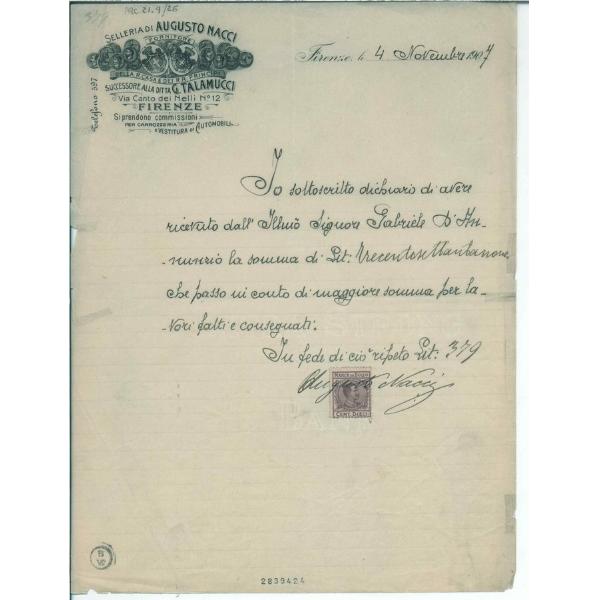 379
Arc. 21.9/26
SELLERIA DI AUGUSTO NACCI
FORNITORE
DELLA R. CASA E DEI R.R. PRINCIPI
SUCCESSORE ALLA DITTA G. TALAMUCCI
Via Canto dei Nelli No. 12
FIRENZE
Si prendono commissioni
PER CARROZZERIA
E VESTITURA DI AUTOMOBILI
Telefono 397
Firenze, li 4 Novembre 1907
Io sottoscritto dichiaro di avere
ricevuto dall' Illmo Signore Gabriele D'An-
-nunzio la somma di Lit: Trecentosettantanove
che passo in conto di maggiore somma per la-
-vori fatti e consegnati.
In fede di ciò ripeto Lit: 379
MARCA DA BOLLO
Augusto Nacci
CENT. DIECI
2839424